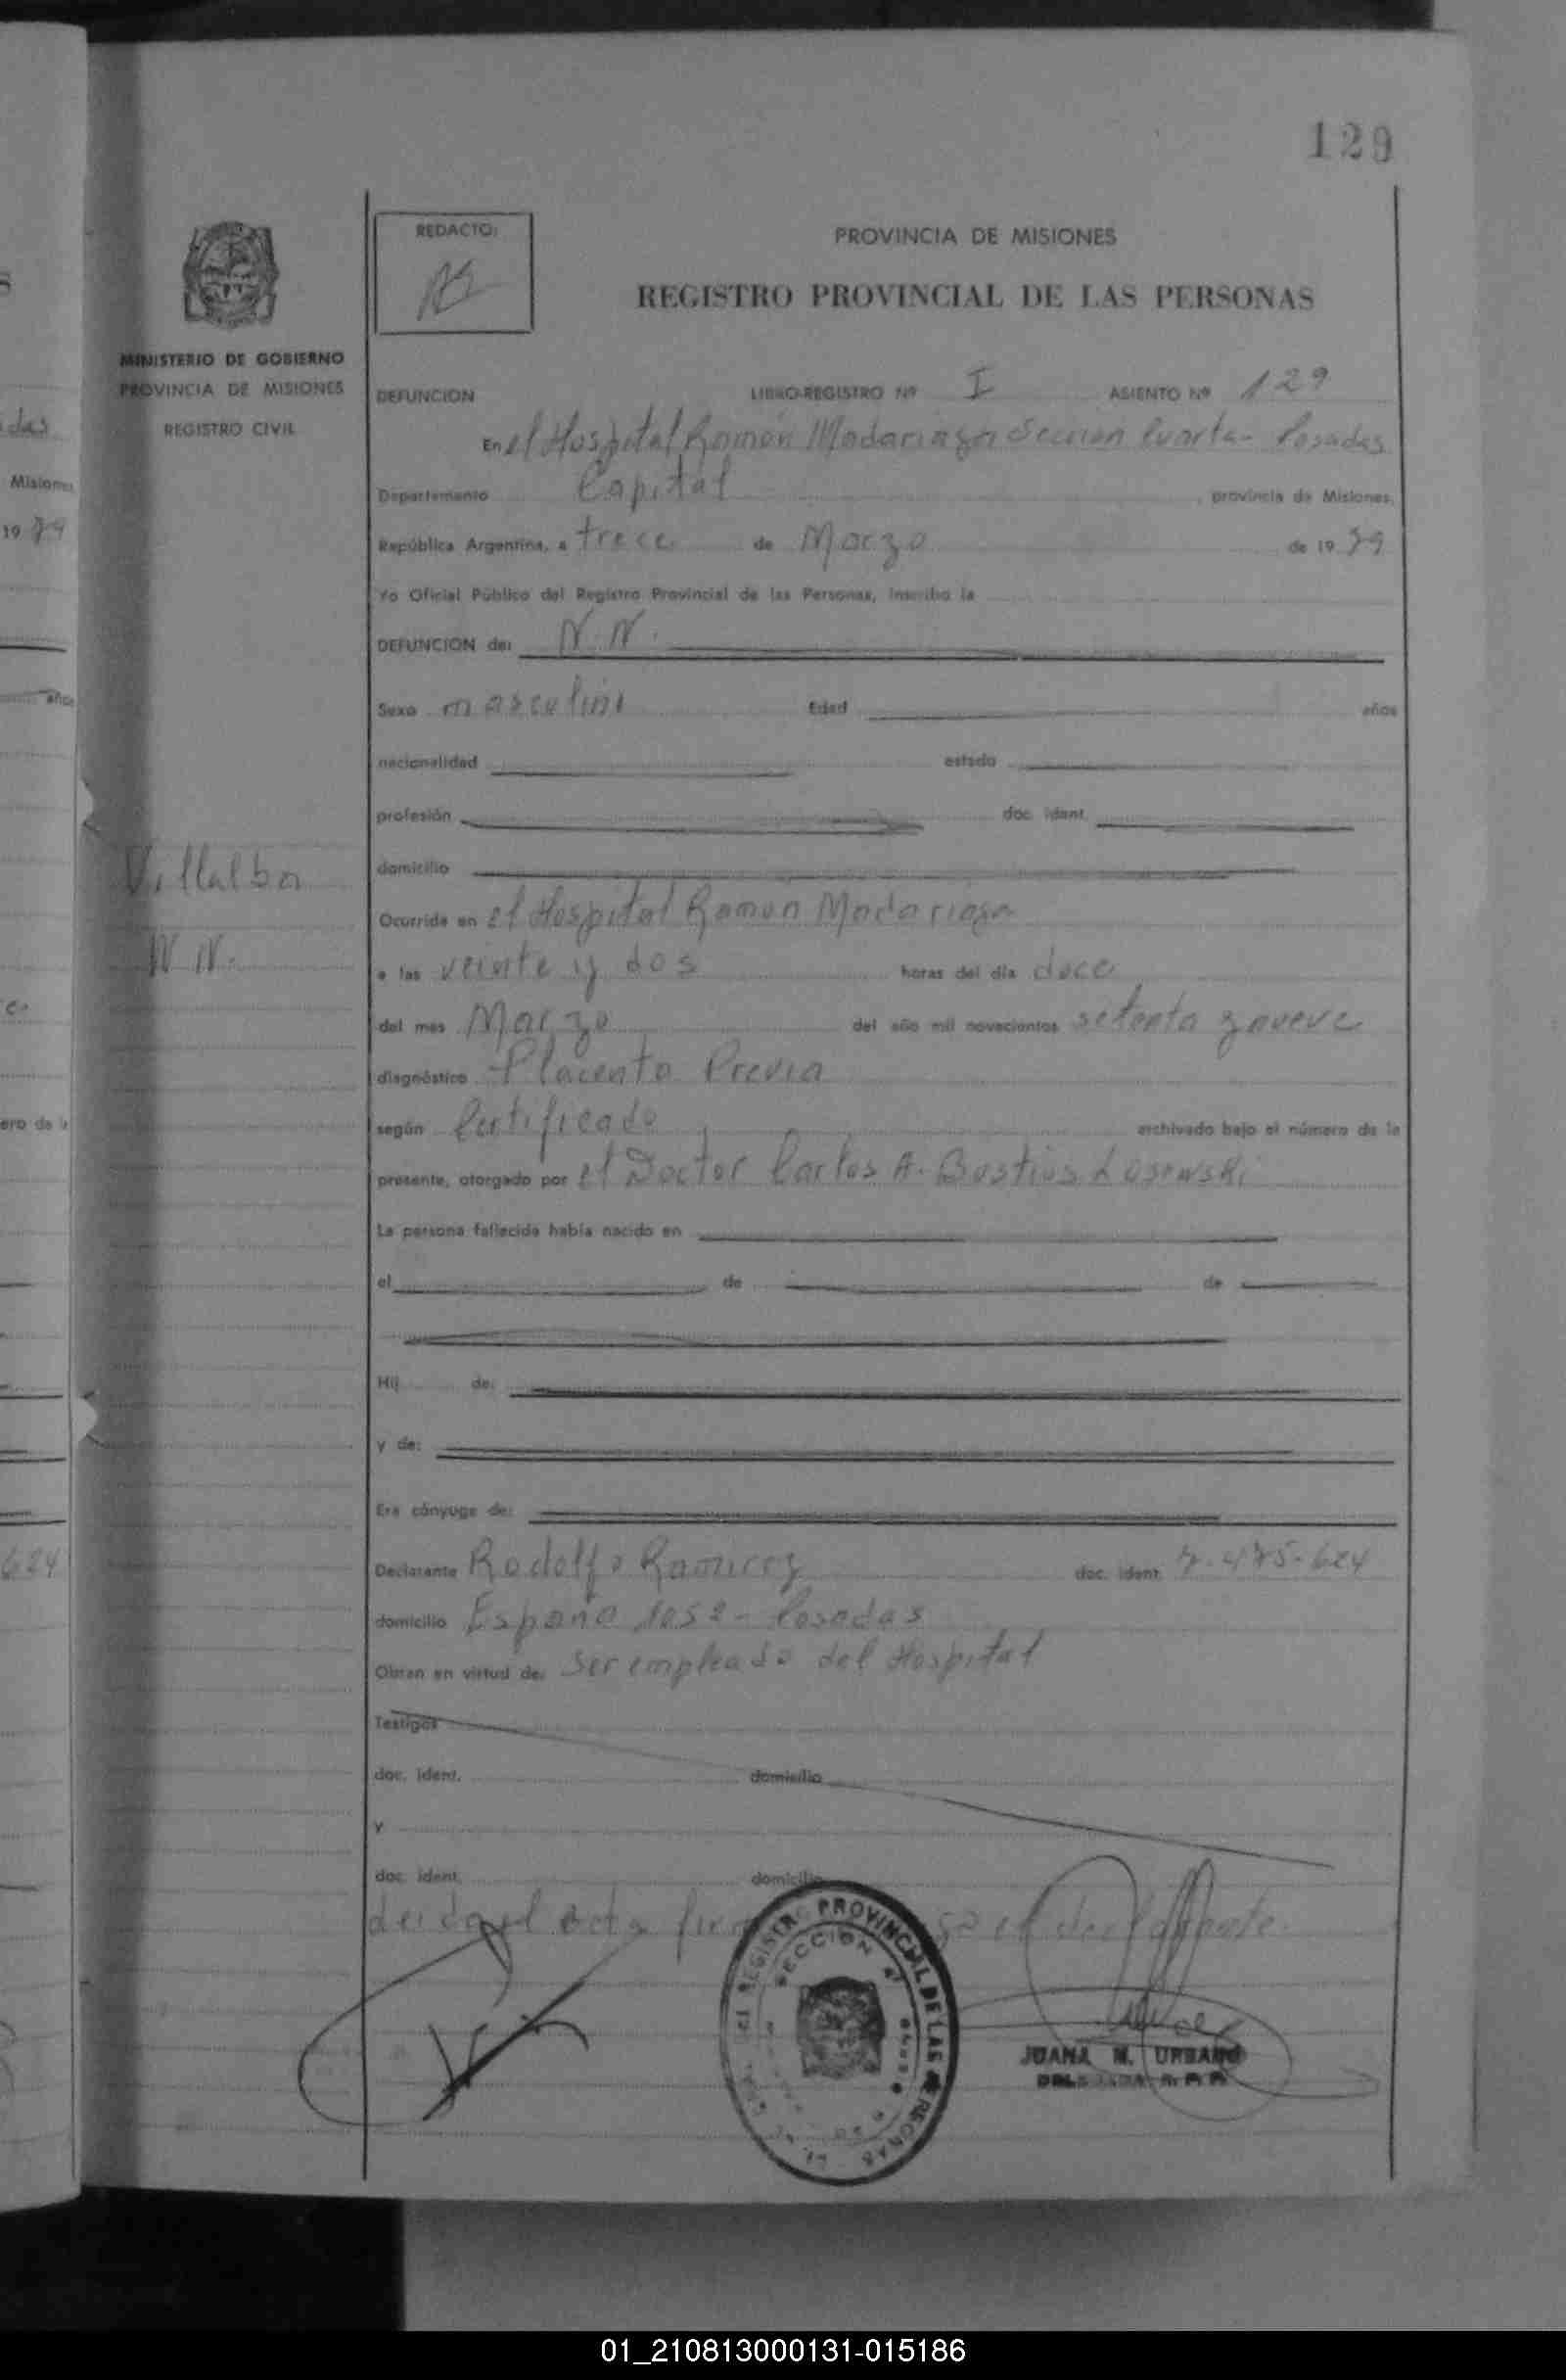 129
REDACTO:
PROVINCIA DE MISIONES
REGISTRO PROVINCIAL DE LAS PERSONAS
MINISTERIO DE GOBIERNO
PROVINCIA DE MISIONES
REGISTRO CIVIL
DEFUNCION LIBRO-REGISTRO Nº I ASIENTO Nº 129
En el Hospital Ramón Madariaga Seccion Cuarta - Posadas
Departamento Capital , provincia de Misiones,
República Argentina, a trece de Marzo de 1979
Yo Oficial Público del Registro Provincial de las Personas, inscribo la
DEFUNCION de: N. N.
Sexo masculino Edad años
nacionalidad estado
profesión doc. ident.
domicilio
Villalba
N N.
Ocurrida en el Hospital Ramon Madariaga
a las veinte y dos horas del día doce
del mes Marzo del año mil novecientos setenta y nueve
diagnóstico Placenta Previa
según Certificado archivado bajo el número de la
presente, otorgado por el Doctor Carlos A. Bastios Losewski
La persona fallecida había nacido en
el de de
Hij de:
y de:
Era cónyuge de:
Declarante Rodolfo Ramirez doc. ident. 7.475.624
domicilio España 1052 - Posadas
Obran en virtud de: ser empleado del Hospital
Testigos
doc. ident. domicilio
y
doc. ident. domicilio
Leida el acta el declarante.
REGISTRO PROVINCIAL DE LAS PERSONAS
SECCION 4ª
JUANA M. URBANO
01_210813000131-015186